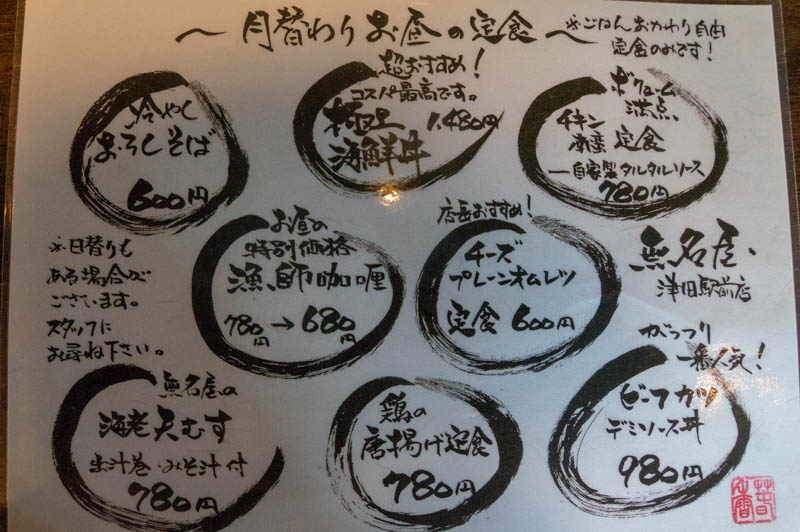 ～月替わりお昼の定食～
※ごはんおかわり自由
定食のみです！
冷やし
おろしそば
600円
超おすすめ！
コスパ最高です。
極上
海鮮丼
1,480円
ボリューム
満点
チキン
南蛮定食
自家製タルタルソース
780円
※日替りも
ある場合が
ございます。
スタッフに
お尋ね下さい。
お昼の
特別価格
漁師咖喱
780円→680円
店長おすすめ！
チーズ
プレーンオムレツ
定食600円
無名屋
津田駅前店
無名屋の
海老天むす
出汁巻・みそ汁付
780円
鶏の
唐揚げ定食
780円
がっつり
一番人気！
ビーフカツ
デミソース丼
980円